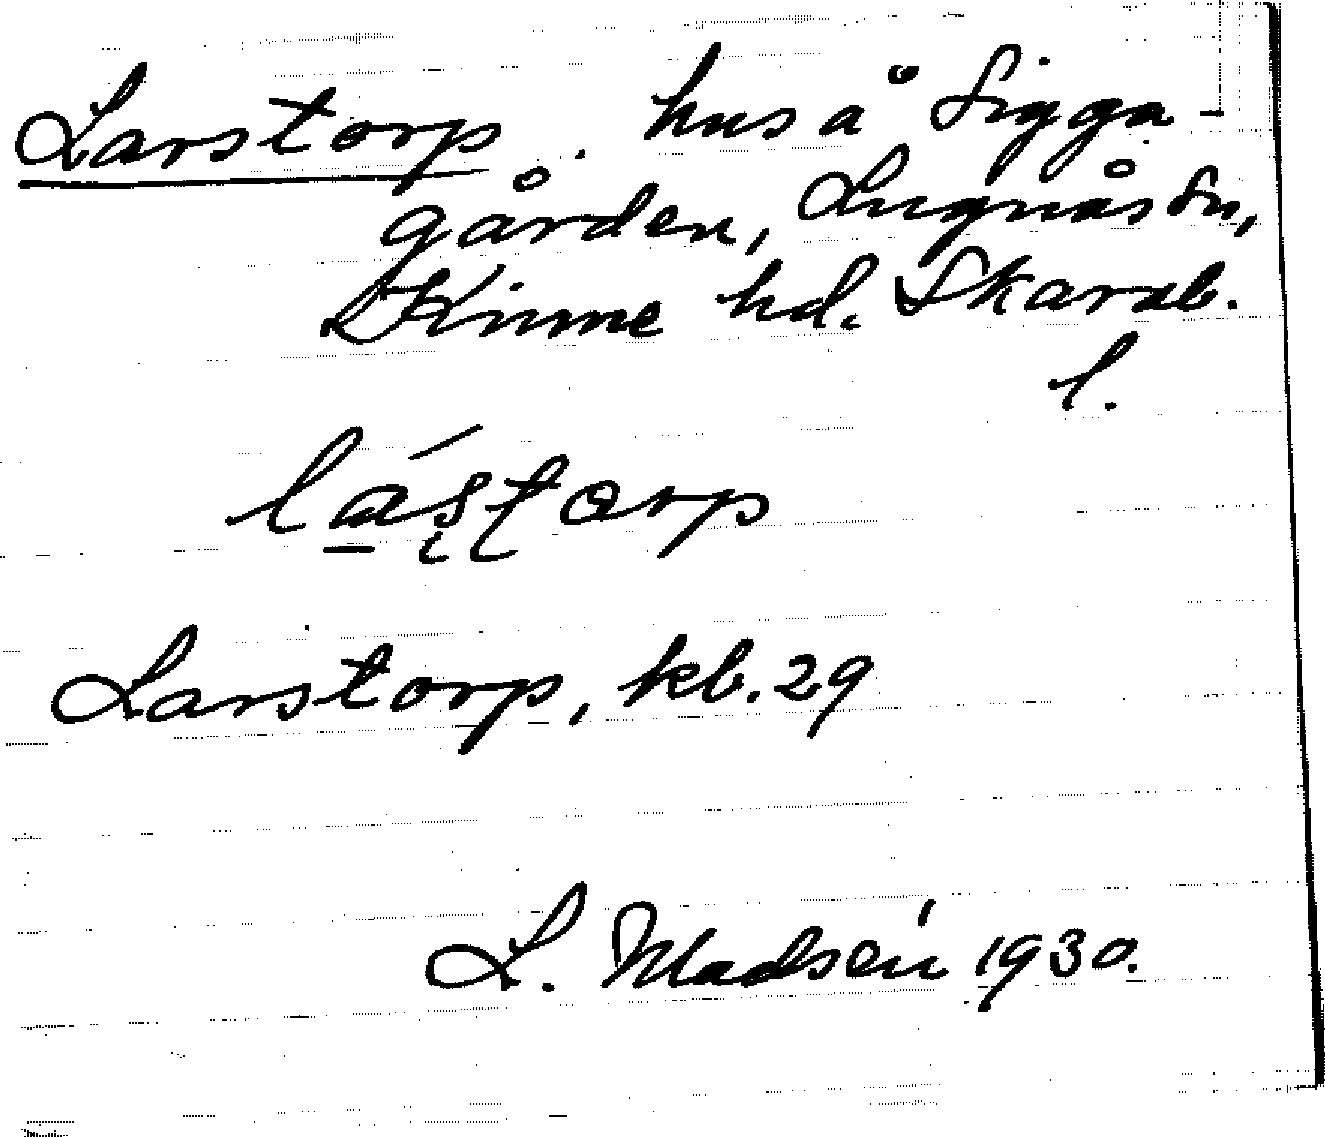 Larstorp. hus å Sigga-
gården, Lugnås sn,
Kinne hd. Skarab.
l.
la̱ʹs̨t̨orp
Larstorp, kb. 29
L. Madsén 1930.